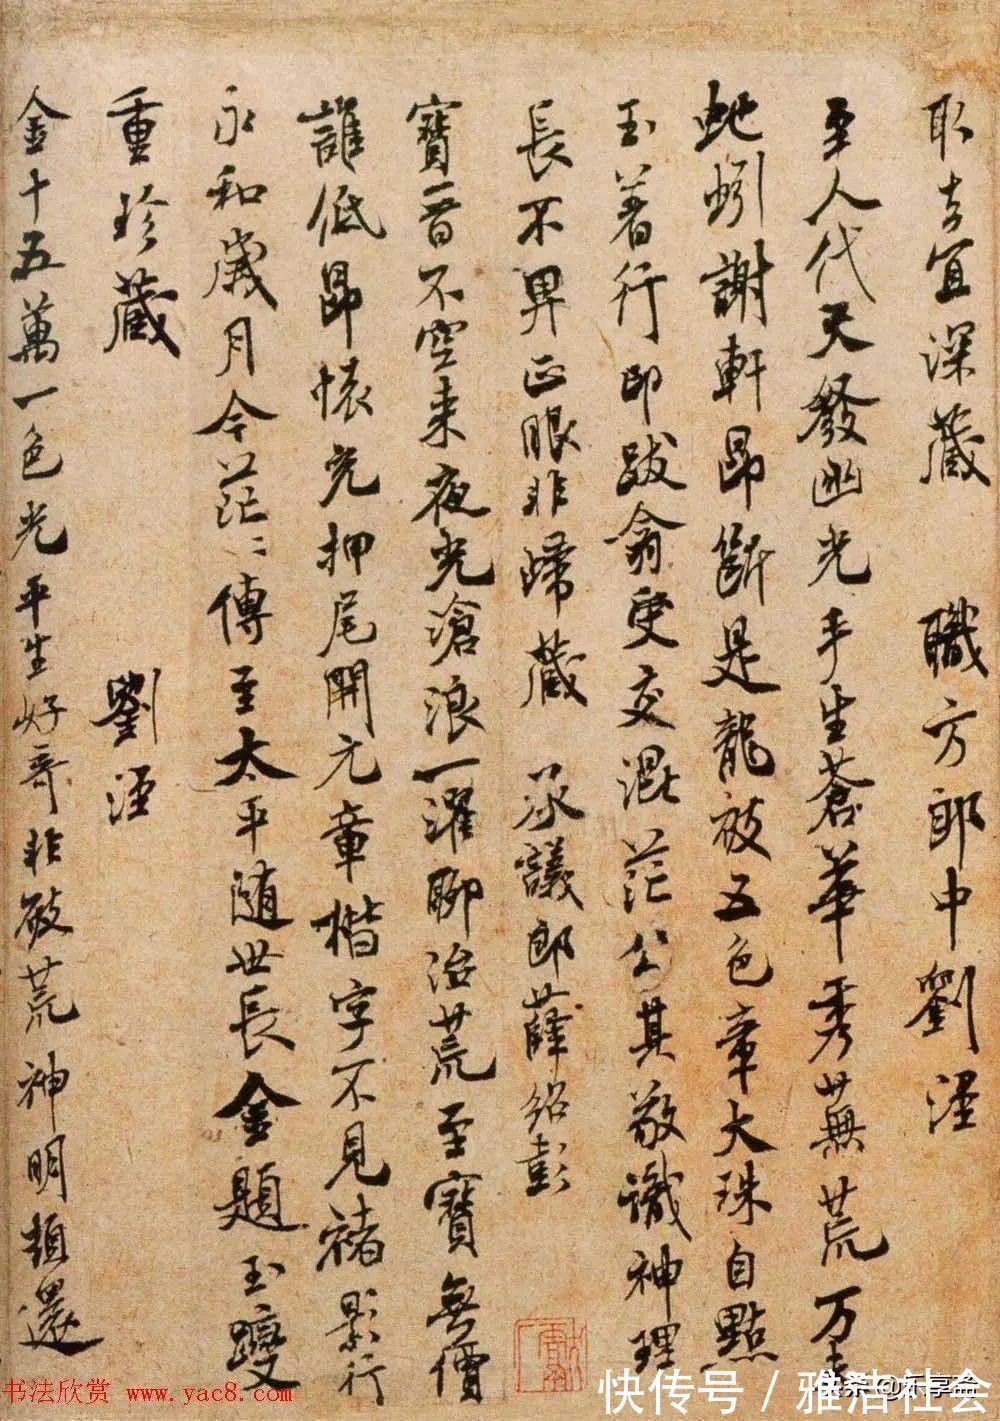 取去宜深藏 職方郎中劉涇
至人代天發幽光手生蒼華秀蕪荒万古
虵蚓謝軒昂斷是龍被五色章大珠自點
玉著行印跋翕更交混茫公其敬識神理
長不畀正眼非歸藏 承議郎薛紹彭
寶晋不空来夜光滄浪一濯聊治荒至寶無價
誰低昂懷充押尾開元章楷字不見褚影行
永和歲月今茫〻傳至太平随世長金題玉躞
重珍藏 劉涇
金十五萬一色光平生好奇非破荒神明頓還
书法欣赏 www.yac8.com
快传号／雅洁社会